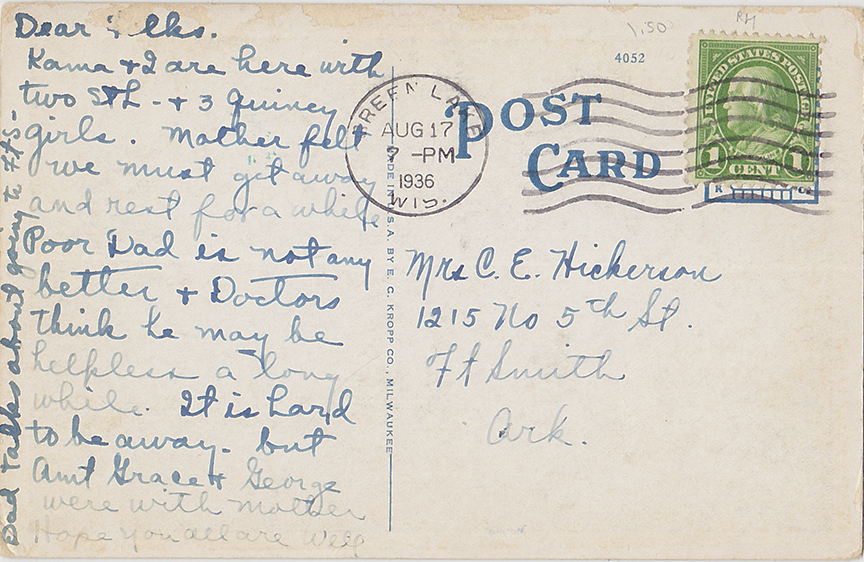 Dear Folks.
Kama + I are here with
two StL - + 3 Quincy
girls. Mother felt
we must get away
and rest for a while
Poor Dad is not any
better + Doctors
think he may be
helpless a long
while. It is hard
to be away - but
Aunt Grace + George
were with mother
Hope you all are Well
Dad talks about going to Ft S-
1.50
RH
4052
UNITED STATES POSTAGE
1 CENT 1
GREEN LAKE
AUG 17
7 -PM
1936
WIS.
POST
CARD
MADE IN U.S.A. BY E. C. KROPP CO., MILWAUKEE
Mrs C. E. Hickerson
1215 No 5th St.
Ft Smith
Ark.